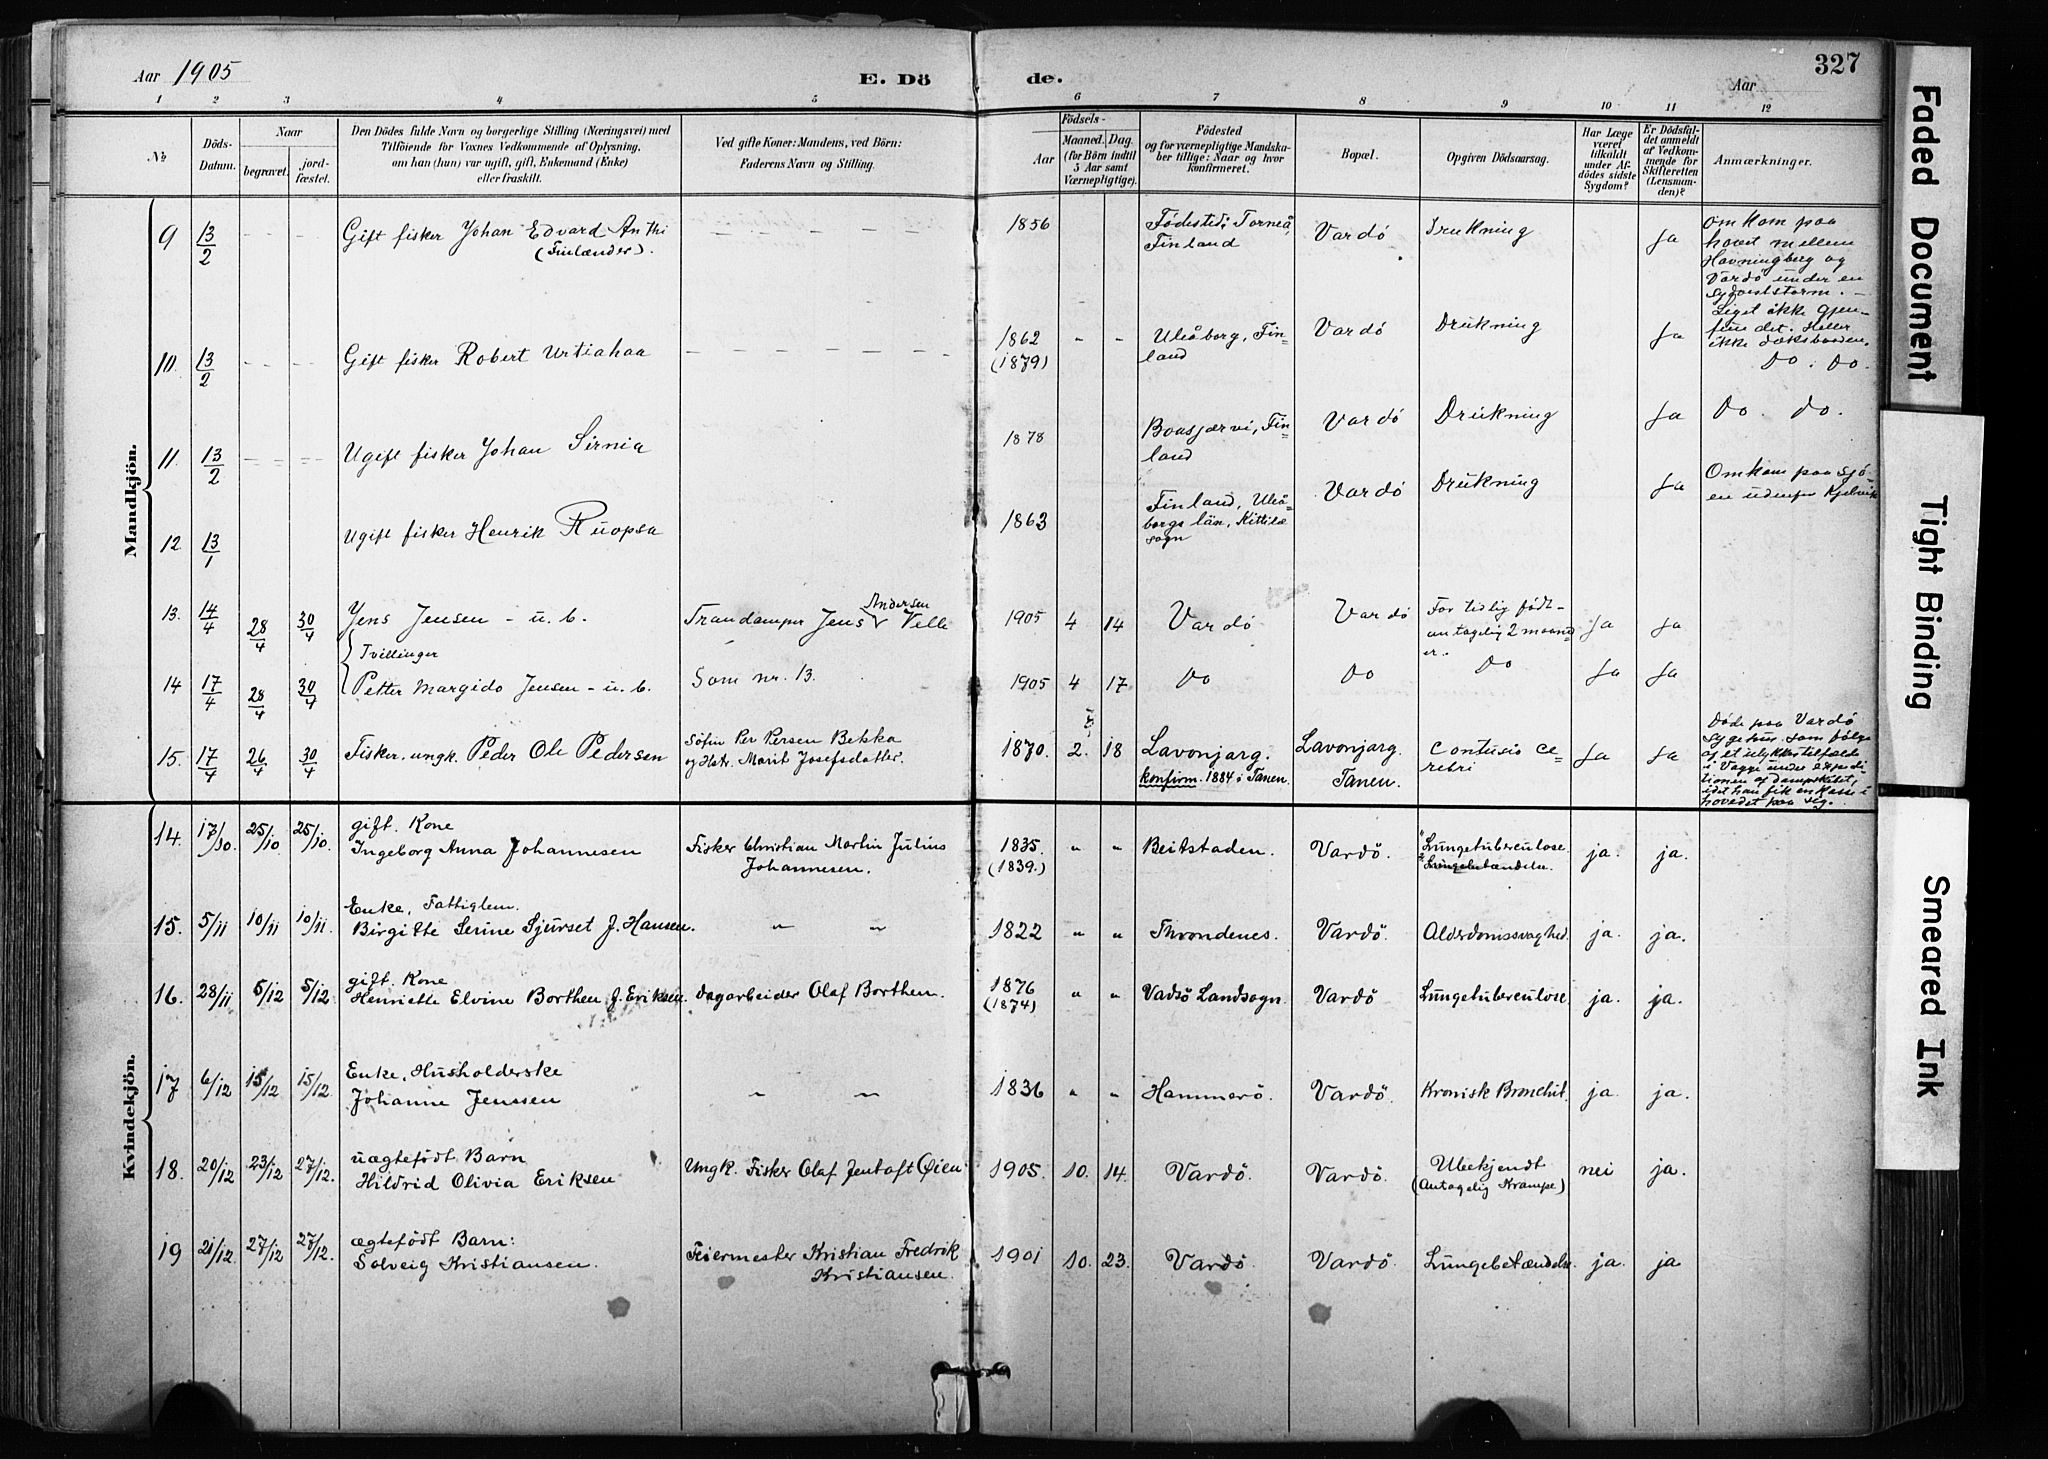 Aar 1905
E. Dö
de.
Aar
327
1 2 3 4 5 6 7 8 9 10 11 12
№
Döds-Datum.
Naar
begravet.
jord-fæstet.
Den Dödes fulde Navn og borgerlige Stilling (Næringsvei) med
Tilföiende for Voxnes Vedkommende af Oplysning,
om han (hun) var ugift, gift, Enkemand (Enke)
eller fraskilt.
Ved gifte Koner: Mandens, ved Börn:
Faderens Navn og Stilling.
Födsels-
Aar
Maaned. Dag.
(for Börn indtil
5 Aar samt
Værnepligtige).
Födested
og for værnepligtige Mandska-
ber tillige: Naar og hvor
Konfirmeret.
Bopæl.
Opgiven Dödsaarsag.
Har Læge
været
tilkaldt
under Af-
dödes sidste
Sygdom?
Er Dödsfal-
det anmeldt
af Vedkom-
mende for
Skifteretten
(Lensman-
den)?
Anmærkninger.
Mandkjön.
9 13/2 - - - Gift fisker Johan Edvard Anthi
(Finlænder).
1856 Födested: Torneå,
Finland
Vardö Drukning Ja
Omkom paa
havet mellem
Havningberg og
Vardö under en
sydveststorm. -
Liget ikke gjen-
fundet. Heller
ikke
10 13/2 - - - Gift fisker Robert Urtiahaa - - - - - -
1862
(1879)
" " Uleåborg, Fin-
land
Vardö Drukning Ja Do. Do.
11. 13/2 - - - Ugift fisker Johan Sirnia
1878 Boasjærvi, Fin-
land
Vardö Drukning Ja Do. Do.
12 13/1 Ugift fisker Henrik Ruopsa
1863 Finland, Uleå-
borgs län, Kittilæ
sogn
Vardö Drukning Ja Omkom paa sjö-
en udenfor Kjelvik
13. 14/4 28/4 30/4 Jens Jensen - u. b. Trandamper Jens Andersen Velle
1905 4 14 Vardö Vardö For tidlig födt -
antagelig 2 maaned-
er.
Ja Ja
Tvillinger
14 17/4 28/4 30/4 Petter Margido Jensen - u. b. Som nr. 13.
1905 4 17 Do Do Do Ja Ja
15. 17/4 26/4 30/4 Fisker, ungk. Peder Ole Pedersen
Söfin Per Persen Bekka
og Hstr. Marit Josefsdatter.
1870. 2. 18 Lavonjarg.
konfirm. 1884 i Tanen.
Lavonjarg.
Tanen.
Contusio ce-
rebri
Ja Ja
Döde paa Vardö
sygehus som fölge
af et ulykkestilfælde
i Vagge under expedi-
tionen af dampskibet,
idet han fik en kasse i
hovedet paa sig.
Kvindekjön.
14. 17/10. 25/10 25/10. gift. Kone
Ingeborg Anna Johannesen
Fisker Christian Martin Julius
Johannesen.
1835.
(1839.)
" " Beitstaden. Vardö. Lungetuberculose.
Lungebetændelse.
ja. ja.
15. 5/11 10/11 10/11. Enke, Fattiglem.
Birgitte Serine Sjurset f. Hansen. " "
1822 " " Throndenes. Vardö. Alderdomssvaghed. ja. ja.
16. 28/11 5/12 5/12 gift. Kone
Henriette Elvine Borthen f. Eriksen. Dagarbeider Olaf Borthen.
1876
(1874)
" " Vadsö Landsogn. Vardö Lungetuberculose. ja. ja.
17 6/12 15/12 15/12. Enke, Husholderske
Johanne Jenssen " "
1836 " " Hammerö. Vardö. Kronisk Bronchit. ja. ja.
18. 20/12 23/12 27/12. uægtefödt Barn
Hildrid Olivia Eriksen
Ungk. Fisker Olaf Jentoft Øien
1905. 10. 14. Vardö. Vardö. Ubekjendt
(Antagelig Krampe)
nei ja.
19 21/12. 27/12 27/12. ægtefödt Barn:
Solveig Kristiansen.
Feiermester Kristian Fredrik
Kristiansen.
1901 10. 23. Vardö Vardö. Lungebetændelse. ja. ja
Faded Document
Tight Binding
Smeared Ink